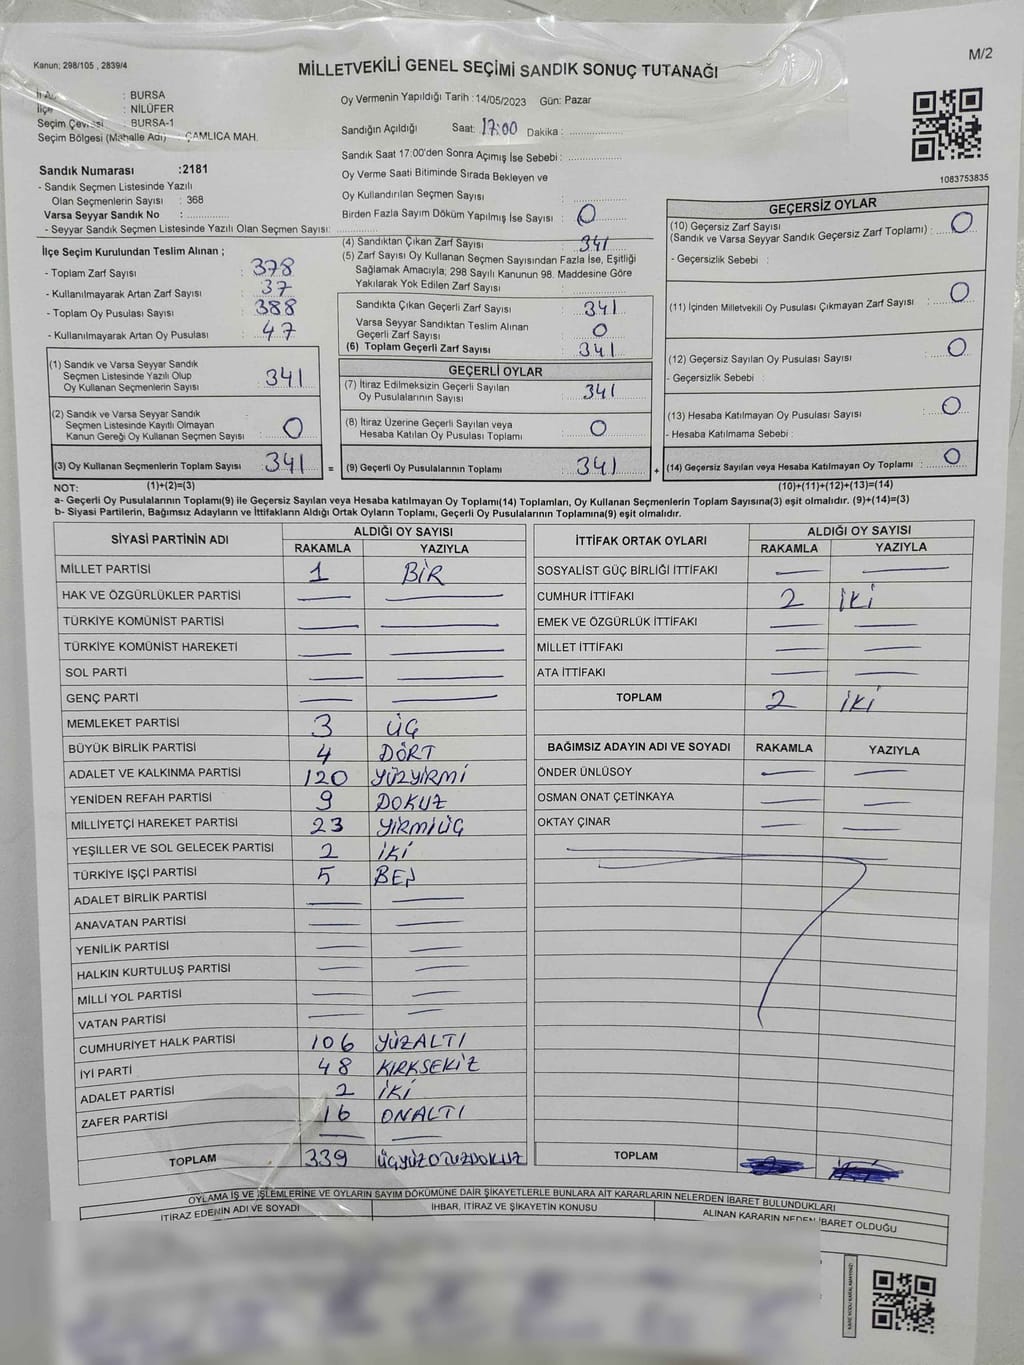 Kanun; 298/105 , 2839/4
M/2
MİLLETVEKİLİ GENEL SEÇİMİ SANDIK SONUÇ TUTANAĞI
: BURSA
İlçe : NİLÜFER
Seçim Çevresi : BURSA-1
Seçim Bölgesi (Mahalle Adı) : ÇAMLICA MAH.
Oy Vermenin Yapıldığı Tarih : 14/05/2023 Gün: Pazar
Sandığın Açıldığı Saat: 17:00 Dakika : ..............
Sandık Saat 17:00'den Sonra Açımış İse Sebebi : ..............
1083753835
Sandık Numarası :2181
- Sandık Seçmen Listesinde Yazılı
Olan Seçmenlerin Sayısı : 368
Varsa Seyyar Sandık No : ............
- Seyyar Sandık Seçmen Listesinde Yazılı Olan Seçmen Sayısı: ............
Oy Verme Saati Bitiminde Sırada Bekleyen ve
Oy Kullandırılan Seçmen Sayısı : ..............
Birden Fazla Sayım Döküm Yapılmış İse Sayısı : 0
İlçe Seçim Kurulundan Teslim Alınan ;
- Toplam Zarf Sayısı : 378
- Kullanılmayarak Artan Zarf Sayısı : 37
- Toplam Oy Pusulası Sayısı : 388
- Kullanılmayarak Artan Oy Pusulası : 47
(1) Sandık ve Varsa Seyyar Sandık
Seçmen Listesinde Yazılı Olup
Oy Kullanan Seçmenlerin Sayısı : 341
(2) Sandık ve Varsa Seyyar Sandık
Seçmen Listesinde Kayıtlı Olmayan
Kanun Gereği Oy Kullanan Seçmen Sayısı : 0
(3) Oy Kullanan Seçmenlerin Toplam Sayısı : 341 =
(4) Sandıktan Çıkan Zarf Sayısı : 341
(5) Zarf Sayısı Oy Kullanan Seçmen Sayısından Fazla İse, Eşitliği
Sağlamak Amacıyla; 298 Sayılı Kanunun 98. Maddesine Göre
Yakılarak Yok Edilen Zarf Sayısı : ..............
Sandıkta Çıkan Geçerli Zarf Sayısı : 341
Varsa Seyyar Sandıktan Teslim Alınan
Geçerli Zarf Sayısı : 0
(6) Toplam Geçerli Zarf Sayısı : 341
GEÇERLİ OYLAR
(7) İtiraz Edilmeksizin Geçerli Sayılan
Oy Pusulalarının Sayısı : 341
(8) İtiraz Üzerine Geçerli Sayılan veya
Hesaba Katılan Oy Pusulası Toplamı : 0
(9) Geçerli Oy Pusulalarının Toplamı : 341 +
GEÇERSİZ OYLAR
(10) Geçersiz Zarf Sayısı
(Sandık ve Varsa Seyyar Sandık Geçersiz Zarf Toplamı) : 0
- Geçersizlik Sebebi :
(11) İçinden Milletvekili Oy Pusulası Çıkmayan Zarf Sayısı : 0
(12) Geçersiz Sayılan Oy Pusulası Sayısı : 0
- Geçersizlik Sebebi :
(13) Hesaba Katılmayan Oy Pusulası Sayısı : 0
- Hesaba Katılmama Sebebi :
(14) Geçersiz Sayılan veya Hesaba Katılmayan Oy Toplamı : 0
NOT: (1)+(2)=(3) (10)+(11)+(12)+(13)=(14)
a- Geçerli Oy Pusulalarının Toplamı(9) ile Geçersiz Sayılan veya Hesaba katılmayan Oy Toplamı(14) Toplamları, Oy Kullanan Seçmenlerin Toplam Sayısına(3) eşit olmalıdır. (9)+(14)=(3)
b- Siyasi Partilerin, Bağımsız Adayların ve İttifakların Aldığı Ortak Oyların Toplamı, Geçerli Oy Pusulalarının Toplamına(9) eşit olmalıdır.
SİYASİ PARTİNİN ADI ALDIĞI OY SAYISI
RAKAMLA YAZIYLA
MİLLET PARTİSİ 1 BİR
HAK VE ÖZGÜRLÜKLER PARTİSİ
TÜRKİYE KOMÜNİST PARTİSİ
TÜRKİYE KOMÜNİST HAREKETİ
SOL PARTİ
GENÇ PARTİ
MEMLEKET PARTİSİ 3 ÜÇ
BÜYÜK BİRLİK PARTİSİ 4 DÖRT
ADALET VE KALKINMA PARTİSİ 120 YÜZYİRMİ
YENİDEN REFAH PARTİSİ 9 DOKUZ
MİLLİYETÇİ HAREKET PARTİSİ 23 YİRMİÜÇ
YEŞİLLER VE SOL GELECEK PARTİSİ 2 İKİ
TÜRKİYE İŞÇİ PARTİSİ 5 BEŞ
ADALET BİRLİK PARTİSİ
ANAVATAN PARTİSİ
YENİLİK PARTİSİ
HALKIN KURTULUŞ PARTİSİ
MİLLİ YOL PARTİSİ
VATAN PARTİSİ
CUMHURİYET HALK PARTİSİ 106 YÜZALTI
İYİ PARTİ 48 KIRKSEKİZ
ADALET PARTİSİ 2 İKİ
ZAFER PARTİSİ 16 ONALTI
TOPLAM 339 ÜÇYÜZOTUZDOKUZ
İTTİFAK ORTAK OYLARI ALDIĞI OY SAYISI
RAKAMLA YAZIYLA
SOSYALİST GÜÇ BİRLİĞİ İTTİFAKI
CUMHUR İTTİFAKI 2 İKİ
EMEK VE ÖZGÜRLÜK İTTİFAKI
MİLLET İTTİFAKI
ATA İTTİFAKI
TOPLAM 2 İKİ
BAĞIMSIZ ADAYIN ADI VE SOYADI RAKAMLA YAZIYLA
ÖNDER ÜNLÜSOY
OSMAN ONAT ÇETİNKAYA
OKTAY ÇINAR
TOPLAM
OYLAMA İŞ VE İŞLEMLERİNE VE OYLARIN SAYIM DÖKÜMÜNE DAİR ŞİKAYETLERLE BUNLARA AİT KARARLARIN NELERDEN İBARET BULUNDUKLARI
İTİRAZ EDENİN ADI VE SOYADI İHBAR, İTİRAZ VE ŞİKAYETİN KONUSU ALINAN KARARIN NEDEN İBARET OLDUĞU